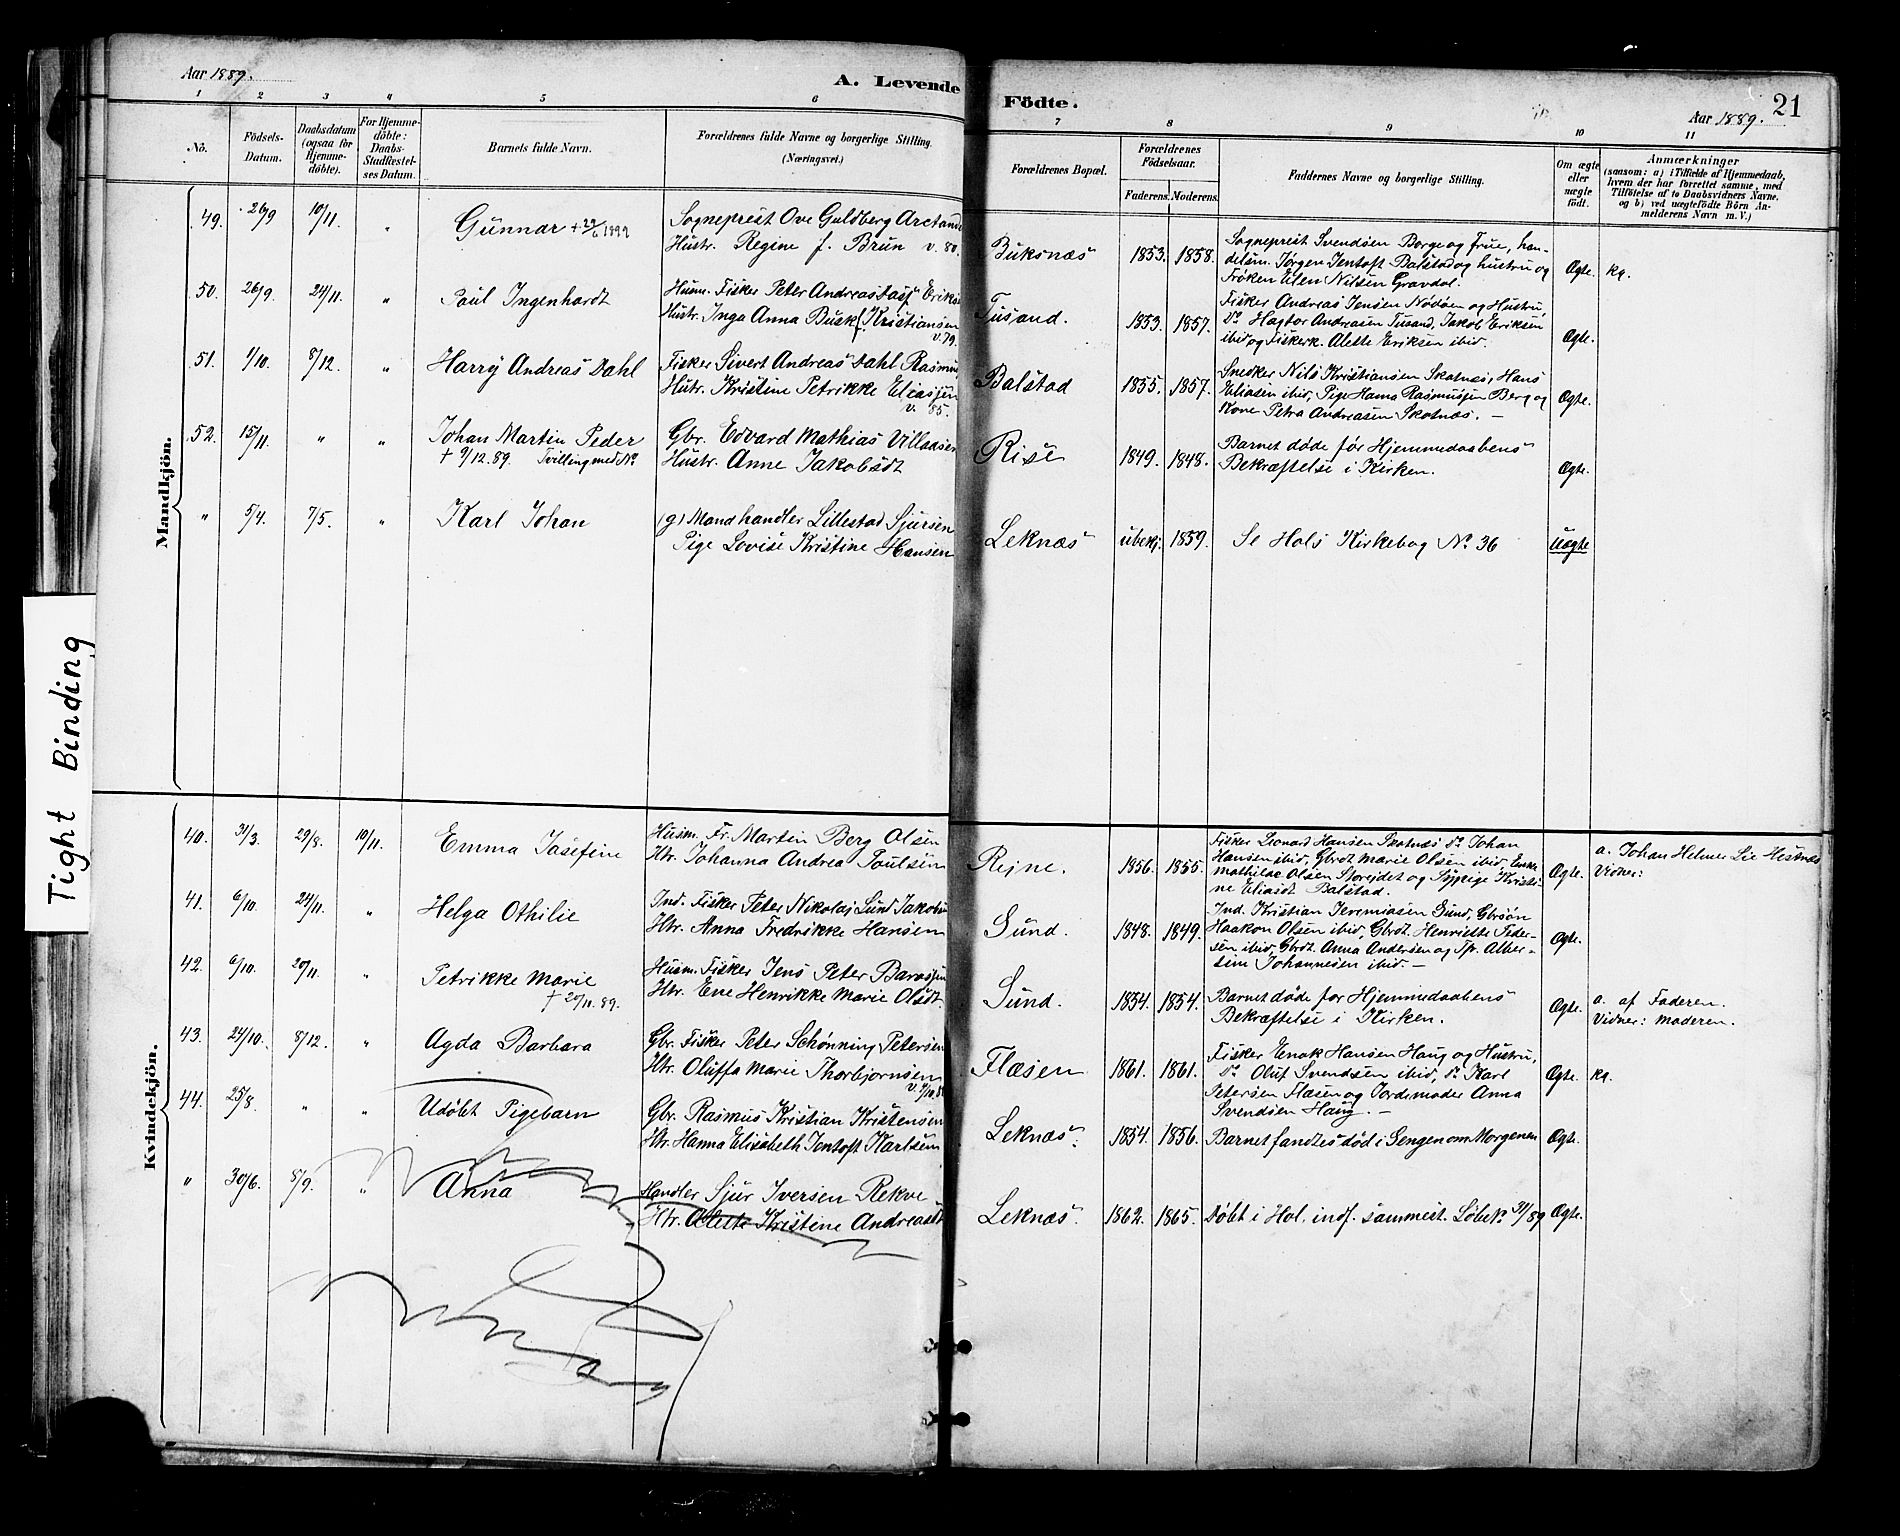 Aar 1889.
A. Levende Födte.
Aar 1889. 21
1 2 3 4 5 6 7 8 9 10 11
No.
Födsels-Datum.
Daabsdatum (ogsaa for Hjemme-döbte).
For Hjemme-döbte: Daabs-Stadfæstel-ses Datum.
Barnets fulde Navn.
Forældrenes fulde Navne og borgerlige Stilling.
(Næringsvei.)
Forældrenes Bopæl.
Forældrenes Födselsaar.
Faderens. Moderens.
Faddernes Navne og borgerlige Stilling.
Om ægte eller uægte födt.
Anmærkninger
(saasom: a) i Tilfælde af Hjemmedaab,
hvem der har forrettet samme, med
Tilföielse af to Daabsvidners Navne,
og b) ved uægtefödte Börn An-
melderens Navn m. V.)
Tight Binding
Mandkjön.
49. 26/9 10/11. " Gunnar
Sogneprest Ove Guldberg Arctander
Hustr. Regine f. Brun v. 80.
Buksnæs 1853. 1858.
Sogneprest Svendsen Borge og Frue, han-
delsm. Jørgen Jentoft Balstad og hustru og
Frøken Elen Nilsen Gravdal.
Ægte. kq.
50. 26/9. 24/11. " Paul Ingenhardt
Husm. Fisker Peter Andreas
Hustr. Inga Anna Busk Kristiansen
v. 79.
Tusand. 1853. 1857.
Fisker Andreas Jensen Nødøen og Hustru,
do Hagtor Andreasen Tusand, Jakob Eriksen
ibid, og Fiskerk. Alette Eriksen ibid.
Ægte.
51. 1/10. 8/12. " Harry Andreas Dahl
Fisker Sivert Andreas Dahl
Hustr. Kristine Petrikke Eliassen
v. 85.
Balstad 1855. 1857.
Snedker Nils Kristiansen Skotnæs, Hans
Eliasen ibid, Pige Hanna Rasmussen Berg og
Kone Petra Andreasen Skotnæs. –
Ægte.
52. 15/11. " " Johan Martin Peder
† 9/12.89. Tvilling med No
Gbr. Edvard Mathias Villadsen
Hustr. Anne Jakobsdt
Rise 1849. 1848.
Barnet døde før Hjemmedaabens
Bekræftelse i Kirken.
Ægte.
" 5/4. 7/5. " Karl Johan
(g) Mand handler Lillestad Sjursen
Pige Lovise Kristine Hansen
Leknæs ubekj. 1859. Se Hols Kirkebog No 36 Uægte
Kvindekjön.
40. 31/3. 29/8. 10/11. Emma Jasefine
Husm. Fr. Martin Berg Olsen
Htr. Johanna Andrea Poulsen
Rejne. 1856. 1855.
Fisker Leonard Hansen Skotnæs do Johan
Hansen ibid, Gbrdt. Marie Olsen ibid, Enke
Mathilde Olsen Storejdet og Sypige Kristi-
ne Eliasdt Balstad.
Ægte.
a. Johan Helmer Lie Hestnæs
Vidner:
41. 6/10. 24/11. " Helga Othilie
Ind. Fisker Peter Nikolaj Sund
Htr. Anna Fredrikke Hansen
Sund. 1848. 1849.
Ind. Kristian Jeremiasen Sund, Gbrsøn
Haakon Olsen ibid, Gbrdt. Henriette Peder-
sen ibid, Gbrdt. Anna Andersen og Tp. Alber-
tine Johannesen ibid. –
Ægte.
42. 6/10. 20/11. " Petrikke Marie
† 20/11.89.
Husm. Fisker Jens Peter
Htr. Ene Henrikke Marie Olsdt.
Sund. 1854. 1854.
Barnet døde før Hjemmedaabens
Bekræftelse i Kirken.
Ægte.
a. af Faderen.
Vidner: Moderen.
43. 24/10. 8/12. " Agda Barbara
Gbr. Fisker Peter Schønning Petersen
Htr. Oluffa Marie Thorbjørnsen
Flæsen 1861. 1861.
Fisker Enok Hansen Haug og Hustru,
do Oluf Svendsen ibid, do Karl
Petersen Flæsen og Jordemoder Anna
Svendsen Haug. –
Ægte. kq.
44. 25/8. " " Udøbt Pigebarn
Gbr. Rasmus Kristian Kristensen
Htr. Hanna Elisabeth Jentoft Karlsen
Leknæs. 1854. 1856. Barnet fandtes død i Sengen om Morgenen Ægte.
" 30/6. 8/9. " Anna
Handler Sjur Iversen Rekve
Htr. Alette Kristine Andreasdt
Leknæs. 1862. 1865. Døbt i Hol, indf. sammest. Ægte.